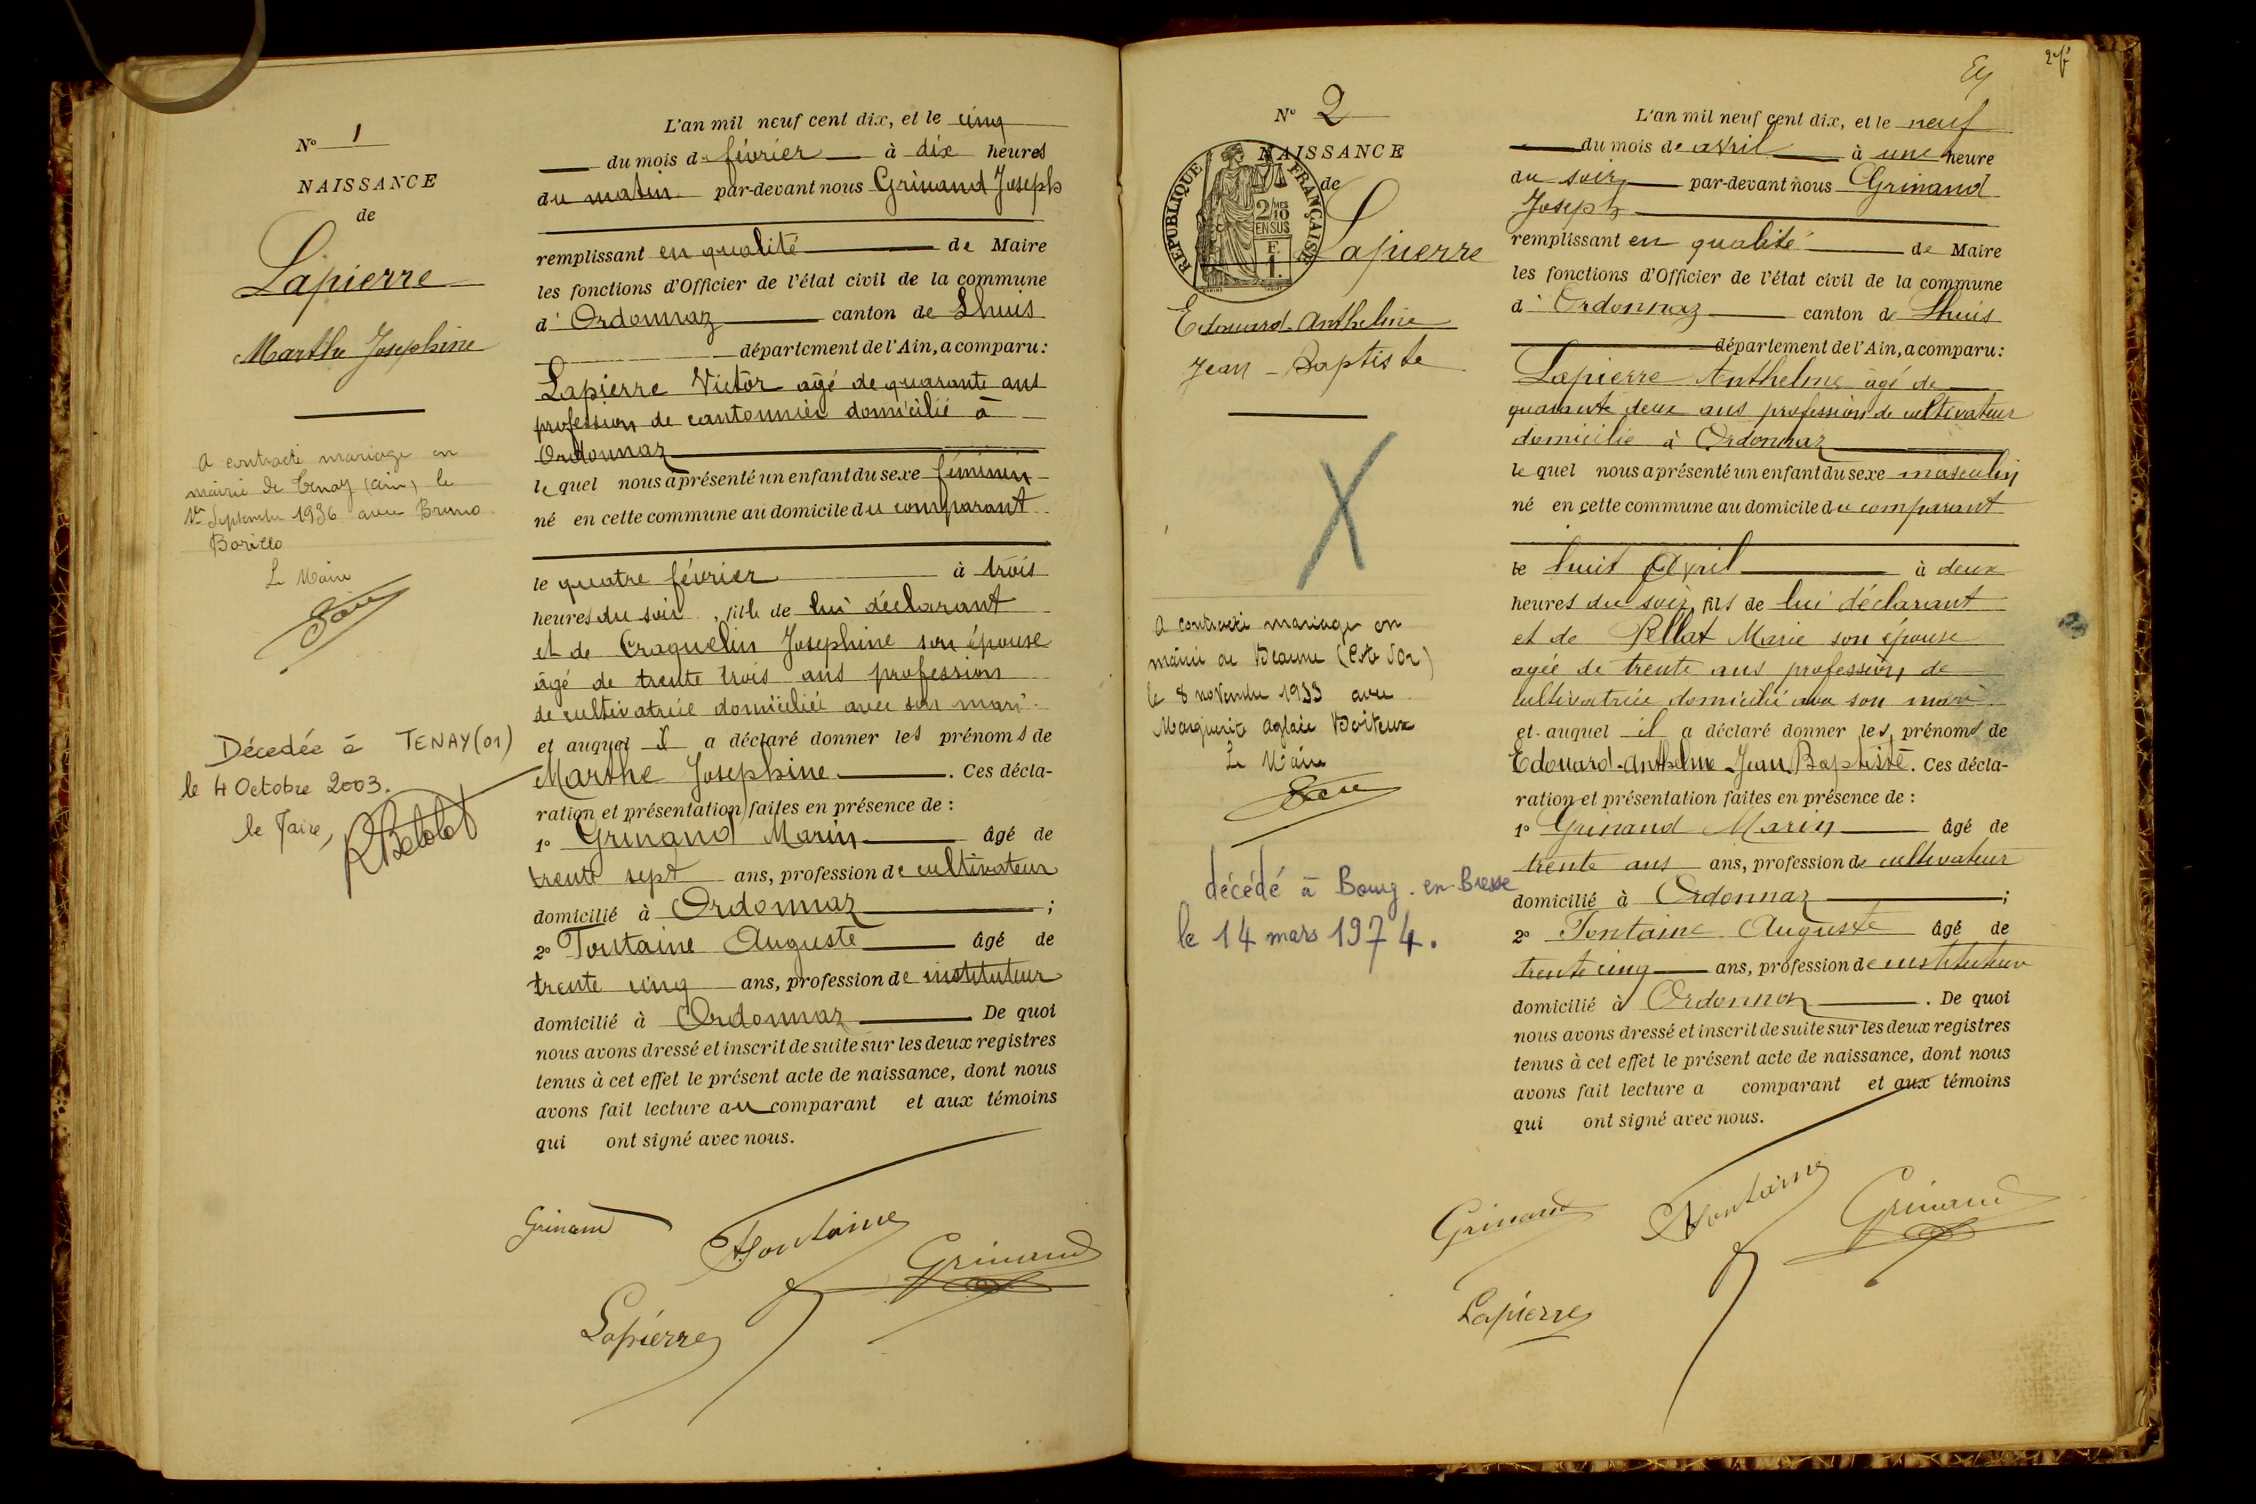 N° 1
NAISSANCE
de
Lapierre
Marthe Josephine
A contracté mariage en
mairie de Tenay (Ain) le
1er Septembre 1936 avec Bruno
Le Maire
Décédée à TENAY (01)
le 4 Octobre 2003.
le Maire,
L'an mil neuf cent dix, et le cinq
du mois de février à dix heures
du matin par-devant nous Grinand Joseph
remplissant en qualité de Maire
les fonctions d'Officier de l'état civil de la commune
d'Ordonnaz canton de Lhuis
département de l'Ain, a comparu:
Lapierre Victor agé de quarante ans
profession de cantonnier domicilié à
Ordonnaz
lequel nous a présenté un enfant du sexe féminin
né en cette commune au domicile du comparant
le quatre février à trois
heures du soir, fille de lui déclarant
et de Craquelin Josephine son épouse
âgé de trente trois ans profession
de cultivatrice domiciliée avec son mari
et auquel il a déclaré donner les prénoms de
Marthe Josephine. Ces décla-
ration et présentation faites en présence de :
1° Grinand Marin âgé de
trente sept ans, profession de cultivateur
domicilié à Ordonnaz ;
2° Fontaine Auguste âgé de
trente cinq ans, profession de instituteur
domicilié à Ordonnaz De quoi
nous avons dressé et inscrit de suite sur les deux registres
tenus à cet effet le présent acte de naissance, dont nous
avons fait lecture au comparant et aux témoins
qui ont signé avec nous.
Grinand
Fontaine
Grinand
Lapierre
N° 2
NAISSANCE
de
RÉPUBLIQUE FRANÇAISE
2/10 MES
EN SUS
F.
1.
Lapierre
Edouard-Anthelme
Jean-Baptiste
X
A contracté mariage en
mairie de Beaune (Côte d'Or)
le 8 novembre 1933 avec
Marguerite Aglaée Boiteux
Le Maire
décédé à Bourg-en-Bresse
le 14 mars 1974.
L'an mil neuf cent dix, et le neuf
du mois de avril à une heure
du soir par-devant nous Grinand
Joseph
remplissant en qualité de Maire
les fonctions d'Officier de l'état civil de la commune
d'Ordonnaz canton de Lhuis
département de l'Ain, a comparu:
Lapierre Anthelme âgé de
quarante deux ans profession de cultivateur
domicilié à Ordonnaz
lequel nous a présenté un enfant du sexe masculin
né en cette commune au domicile du comparant
le huit Avril à deux
heures du soir, fils de lui déclarant
et de Pellat Marie son épouse
agée de trente ans profession de
cultivatrice domicilié avec son mari
et auquel il a déclaré donner les prénoms de
Edouard-Anthelme Jean Baptiste. Ces décla-
ration et présentation faites en présence de :
1° Grinand Marin âgé de
trente ans ans, profession de cultivateur
domicilié à Ordonnaz ;
2° Fontaine Auguste âgé de
trente cinq ans, profession de instituteur
domicilié à Ordonnaz. De quoi
nous avons dressé et inscrit de suite sur les deux registres
tenus à cet effet le présent acte de naissance, dont nous
avons fait lecture a comparant et aux témoins
qui ont signé avec nous.
Grinand
Fontaine
Grinand
Lapierre